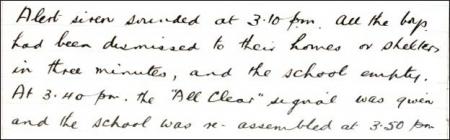 Alert siren sounded at 3.10 pm. All the boys
had been dismissed to their homes or shelters
in three minutes, and the school empty.
At 3.40 pm. the "All Clear" signal was given
and the school was re-assembled at 3.50 pm